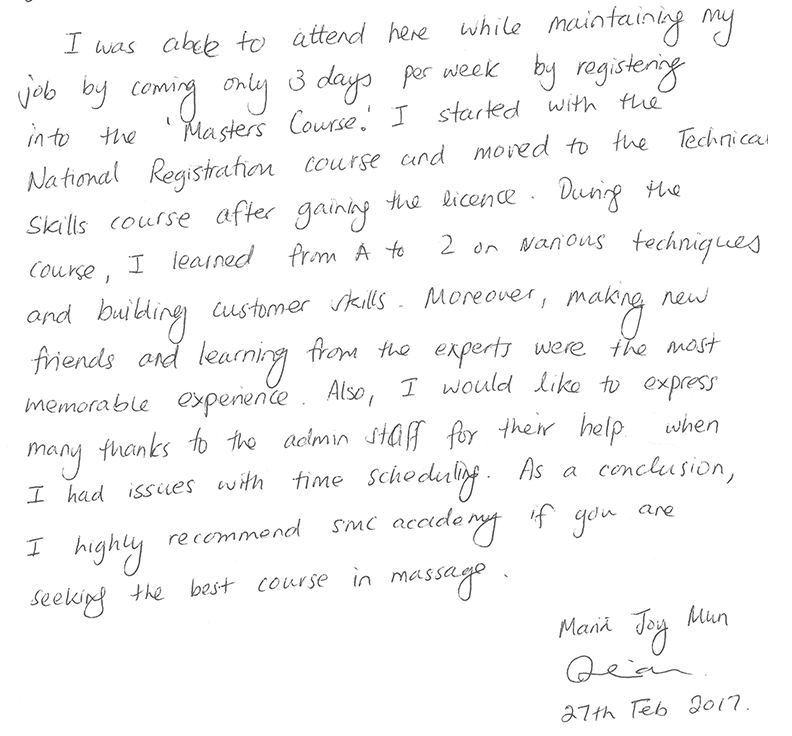 I was able to attend here while maintaining my
job by coming only 3 days per week by registering
into the 'Masters Course.' I started with the
National Registration course and moved to the Technical
Skills course after gaining the licence. During the
course, I learned from A to Z on various techniques
and building customer skills. Moreover, making new
friends and learning from the experts were the most
memorable experience. Also, I would like to express
many thanks to the admin staff for their help when
I had issues with time scheduling. As a conclusion,
I highly recommend SMC academy if you are
seeking the best course in massage.
Joy Mun
27th Feb 2017.